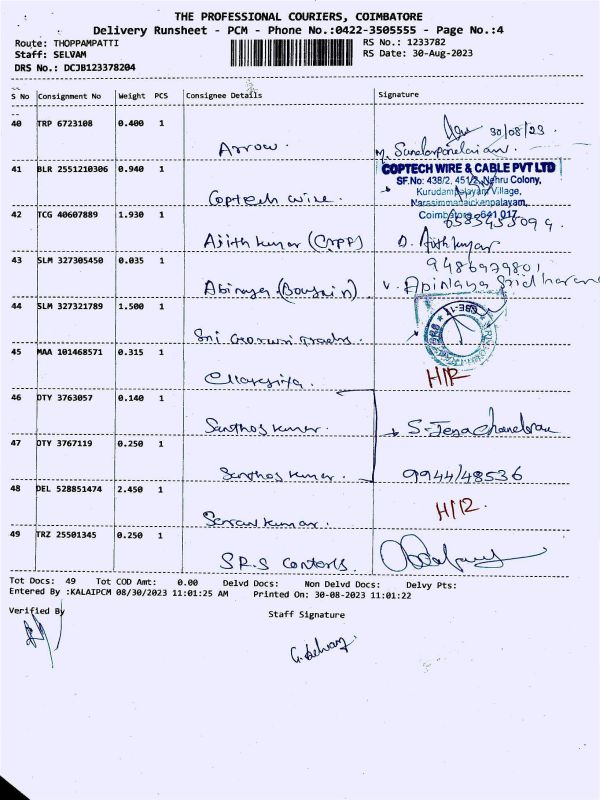 THE PROFESSIONAL COURIERS, COIMBATORE
Delivery Runsheet - PCM - Phone No.:0422-3505555 - Page No.:4
Route: THOPPAMPATTI RS No.: 1233782
Staff: SELVAM RS Date: 30-Aug-2023
DRS No.: DCJB123378204
S No Consignment No Weight PCS Consignee Details Signature
40 TRP 6723108 0.400 1
Arrow. 30/08/23
41 BLR 2551210306 0.940 1 COPTECH WIRE & CABLE PVT LTD
SF.No: 438/2, 451/2, Nehru Colony,
Kurudampalayam Village,
Narasimmanaickenpalayam,
Coptech wire.
42 TCG 40607889 1.930 1 Coimbatore - 641 017.
Ajith kumar (CRPF) D. Ajith kumar
43 SLM 327305450 0.035 1 9486979801
Abinaya V. Apinaya Sridharan
44 SLM 327321789 1.500 1
Sri
45 MAA 101468571 0.315 1
H/R
46 DTY 3763057 0.140 1
Santhos kumar. S. Jeyachandran
47 DTY 3767119 0.250 1
Santhos kumar. 9944148536
48 DEL 528851474 2.450 1
Saravkumar. H/R.
49 TRZ 25501345 0.250 1
S.R.S Controls.
Tot Docs: 49 Tot COD Amt: 0.00 Delvd Docs: Non Delvd Docs: Delvy Pts:
Entered By :KALAIPCM 08/30/2023 11:01:25 AM Printed On: 30-08-2023 11:01:22
Verified By Staff Signature
G. Selvam